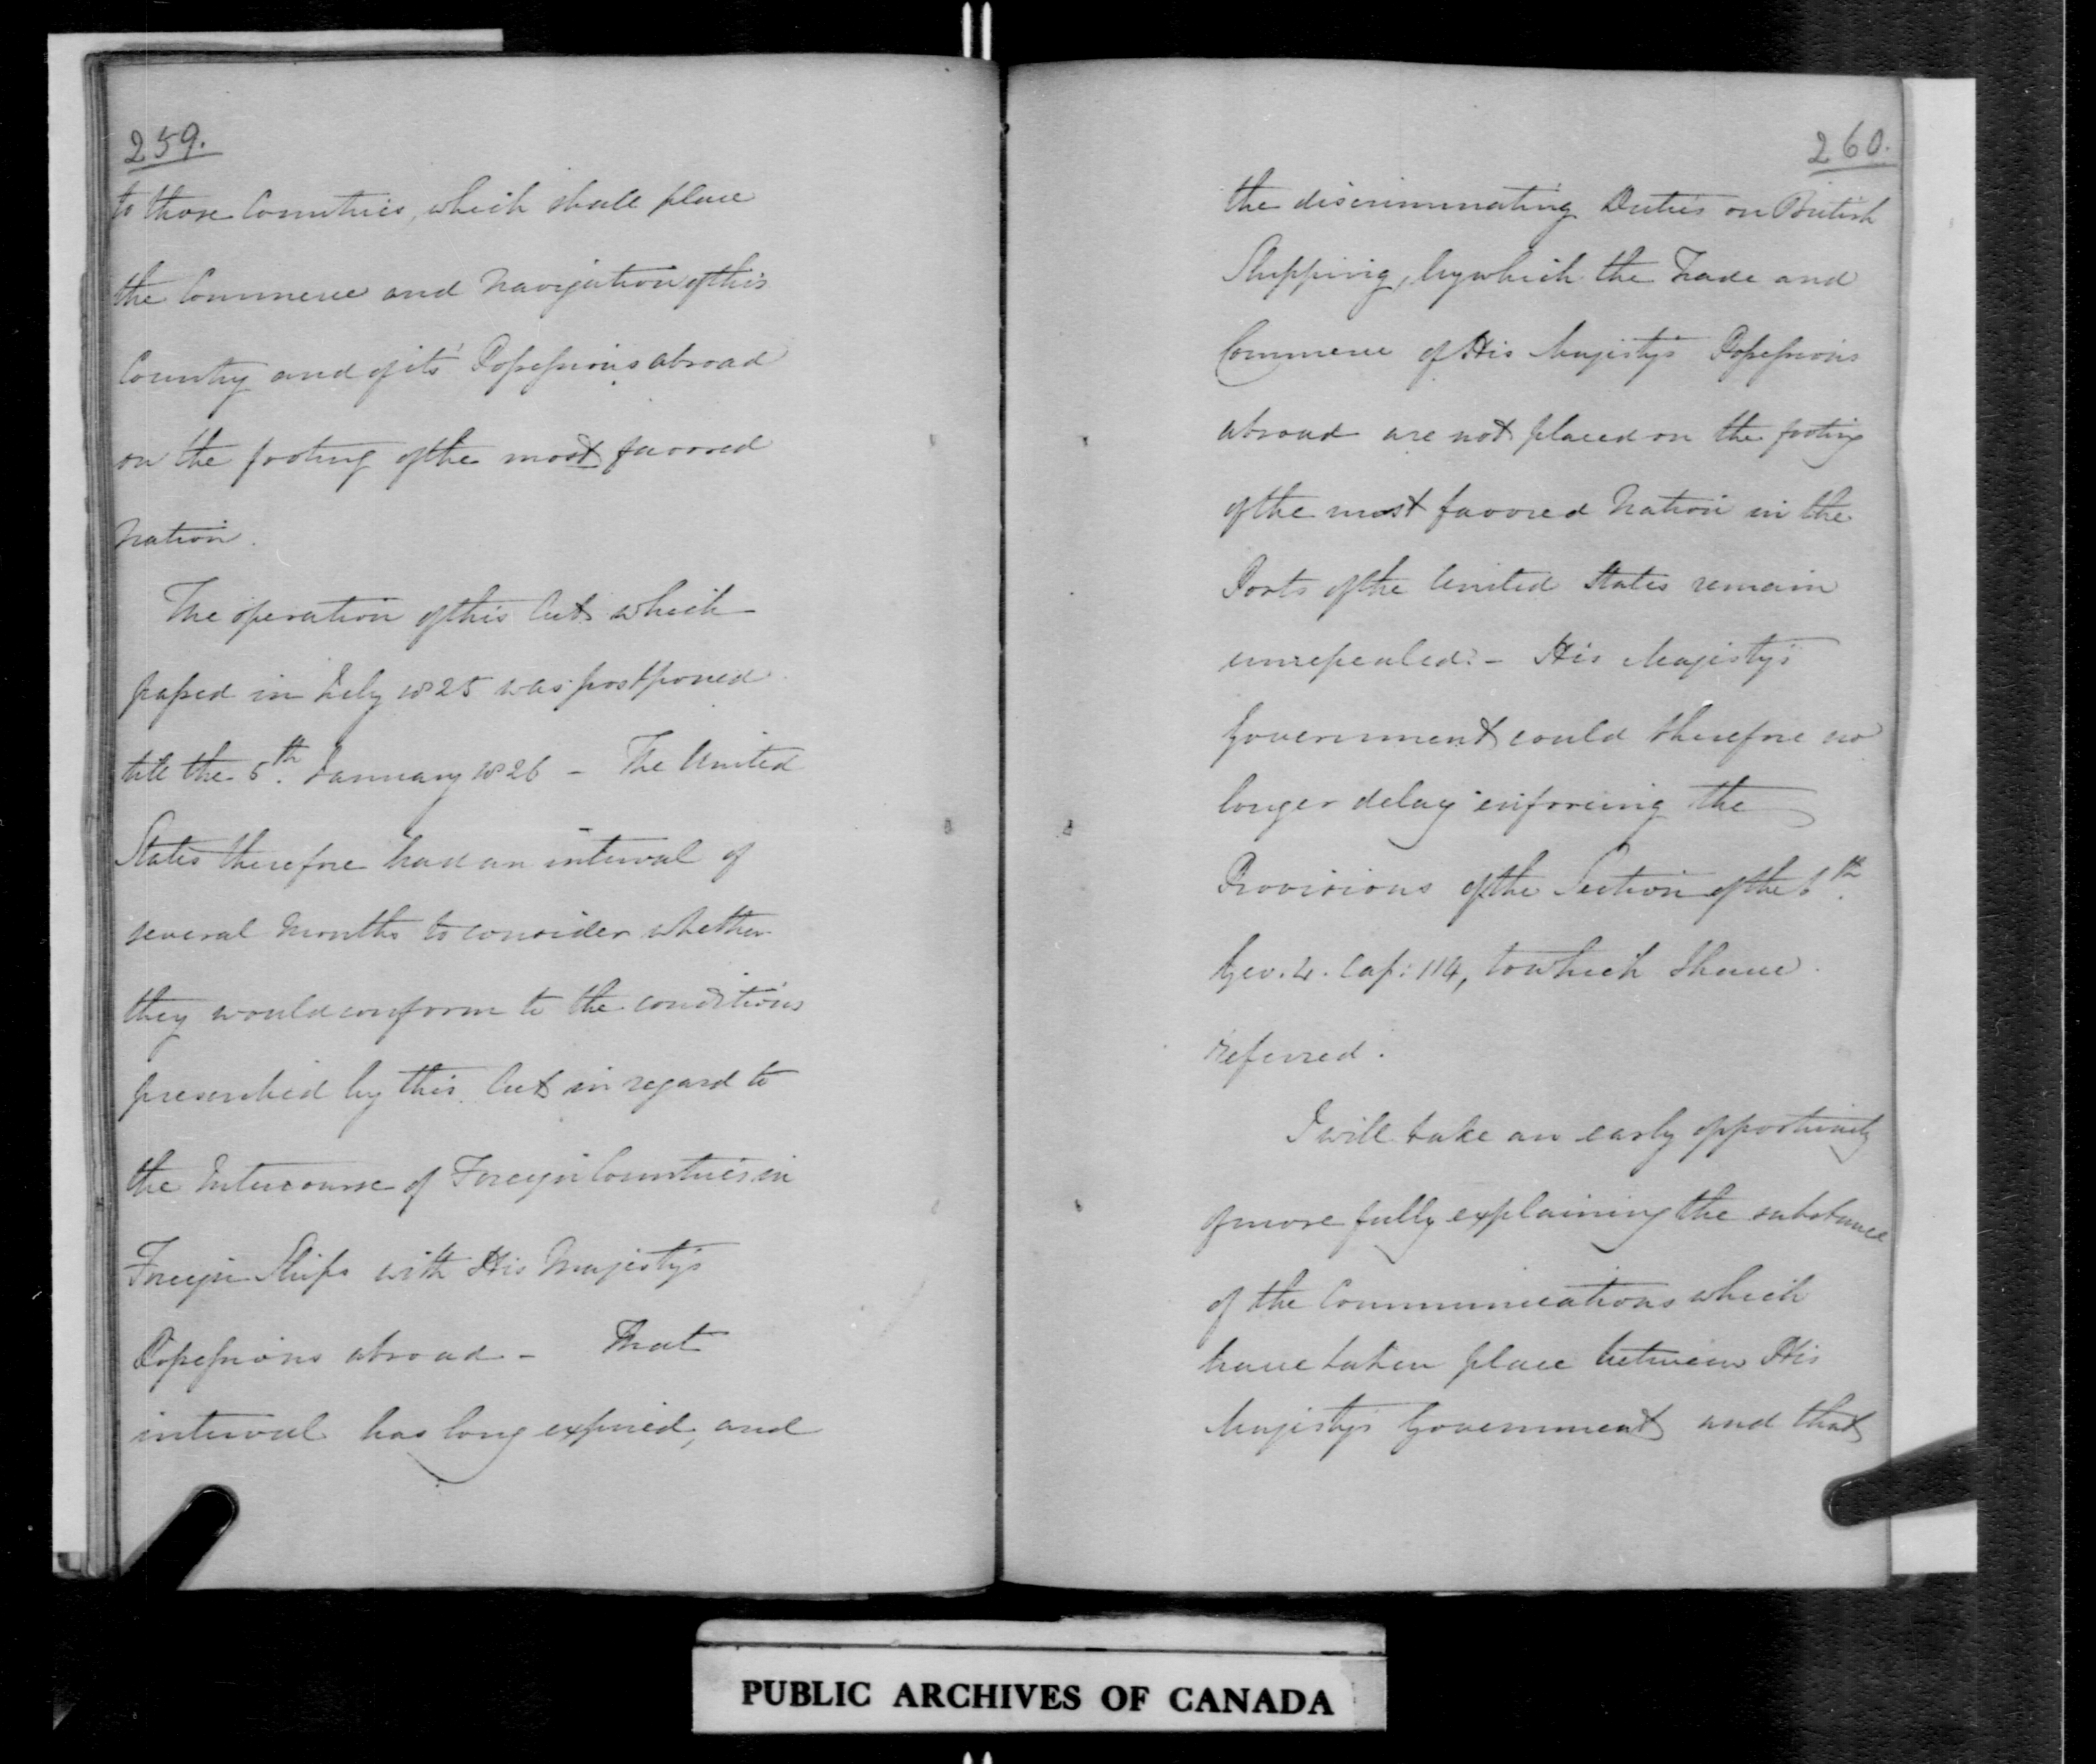 259.
to those Countries, which shall place
the Commerce and Navigation of this
Country and of its' Possessions abroad
on the footing of the most favored
Nation.
The operation of this Act which
passed in July 1825 was postponed
till the 5th. January 1826 - The United
States therefore had an interval of
several Months to consider whether
they would conform to the conditions
prescribed by this Act in regard to
the Intercourse of Foreign Countries in
Foreign Ships with His Majesty's
Possessions abroad - That
interval has long expired, and
260.
the discriminating Duties on British
Shipping, by which the Trade and
Commerce of His Majesty's Possessions
abroad are not placed on the footing
of the most favored Nation in the
Ports of the United States remain
unrepealed:- His Majesty's
Government could therefore no
longer delay enforcing the
Provisions of the Section of the 6th.
Geo. 4. Cap: 114, to which I have
referred.
I will take an early opportunity
of more fully explaining the substance
of the Communications which
have taken place between His
Majesty's Government and that
PUBLIC ARCHIVES OF CANADA